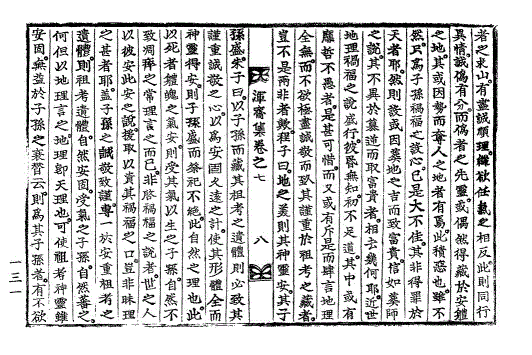 者之求山有靈誠願理雖欲任氣之相反此則同行
異情誠僞有分而僞者之先靈或偶然得藏於安軆
之地其或因勢而奪人之地者有焉此積惡也雖不
然只爲子孫禍福之說心已是大不佳其非得罪於
天者耶然則設或因葬地之吉而致富貴信如葬師
之說其不異於簒逆而取富貴者相去幾何耶近世
地理禍福之說盛行彼昏無知初不足道其中或有
靡哲不愚者是甚可惜而又或有斥是而肆言地理
全無而不欲極靈誠敬而致其謹重於祖考之藏者
豈不是兩非者歟程子曰地之美則其神靈安其子
渾齋集卷之七 八
孫盛朱子曰以子孫而藏其祖考之遺體則必致其
謹重誠敬之心以爲安固久遠之計使其形體全而
神靈得安則子孫盛而祭祀不絶此自然之理也此
以死者軆魄之氣安則受其氣以生之子孫自然不
致凋瘁之常理言之而已非啓禍福之說者世之人
以彼安此安之說援取以賁其禍福之口豈非昧理
之甚者耶盖子孫之誠敬致謹專一於安重祖考之
遺體則祖考遺體自然安固受氣之子孫自然蕃之
何但以地理言之地理卽天理也可使祖考神靈雖
安固無益於子孫之衰替云則爲其子孫者有不欲
一三一